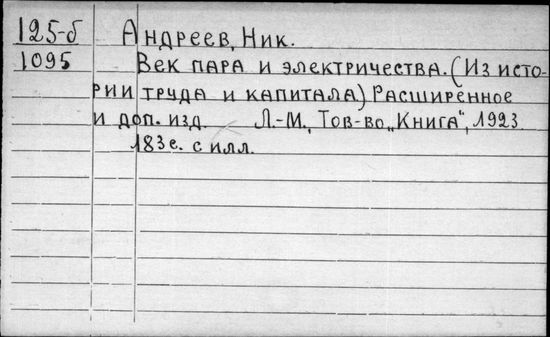 125-б Андреев, Ник.
1095 Век пара и электричества. (Из исто-
рии труда и капитала) Расширенное
и доп. изд. Л.-М., Тов-во „Книга", 1923.
183 с. с илл.